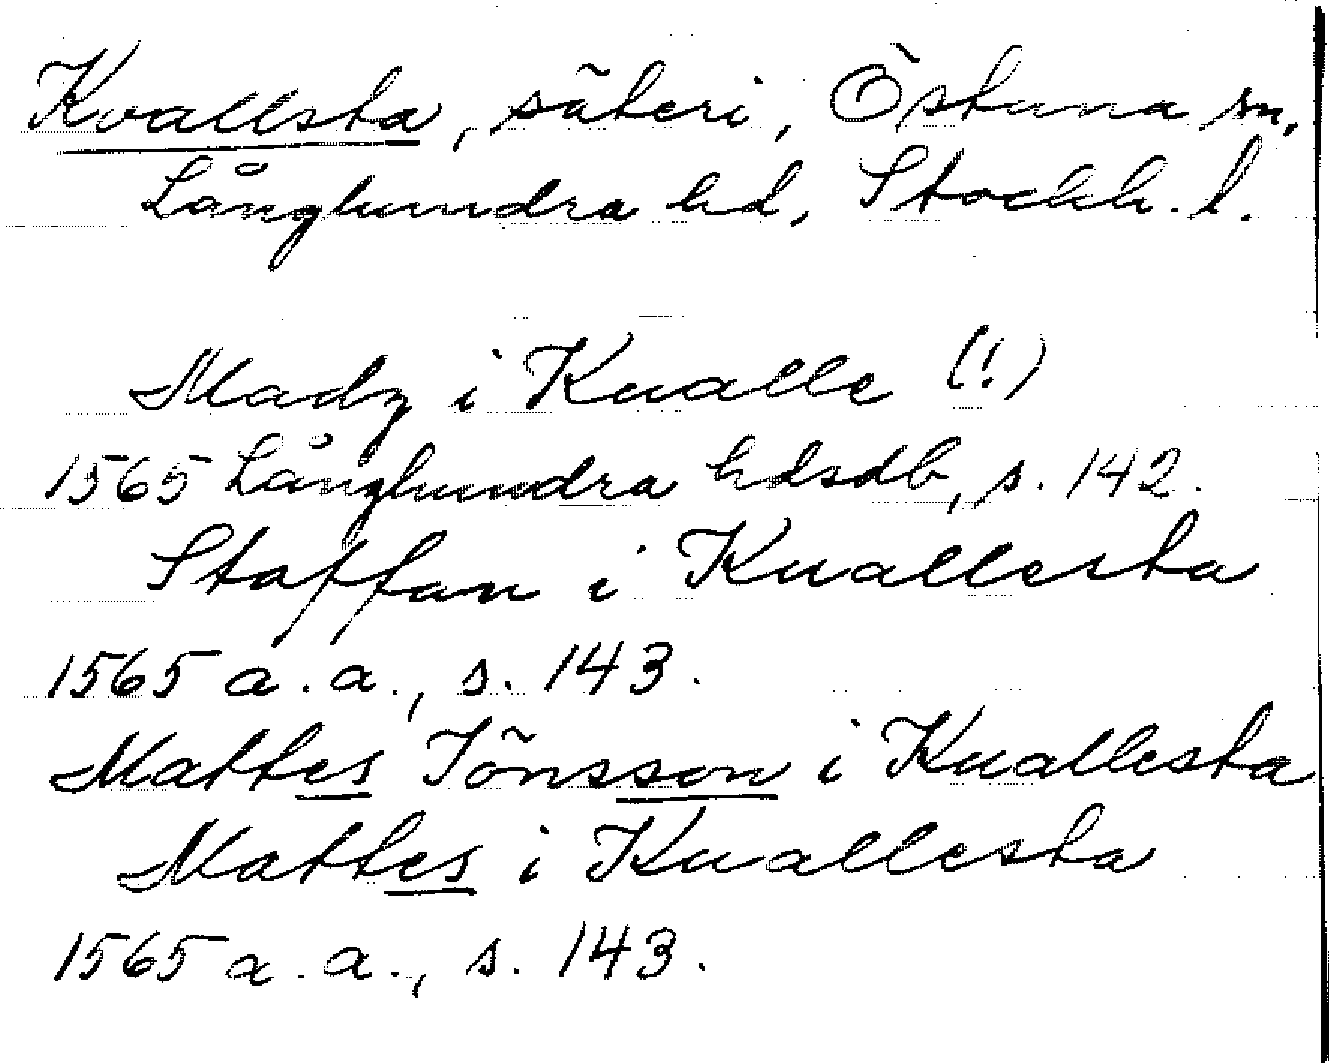 Kvallsta, säteri, Östuna sn,
Långhundra hd, Stockh. l.
Madz i Kualle (!)
1565 Långhundra hdsdb, s. 142.
Staffan i Kuallesta
1565 a.a., s. 143.
Mattes Jönsson i Kuallesta
Mattes i Kuallesta
1565 a.a., s. 143.